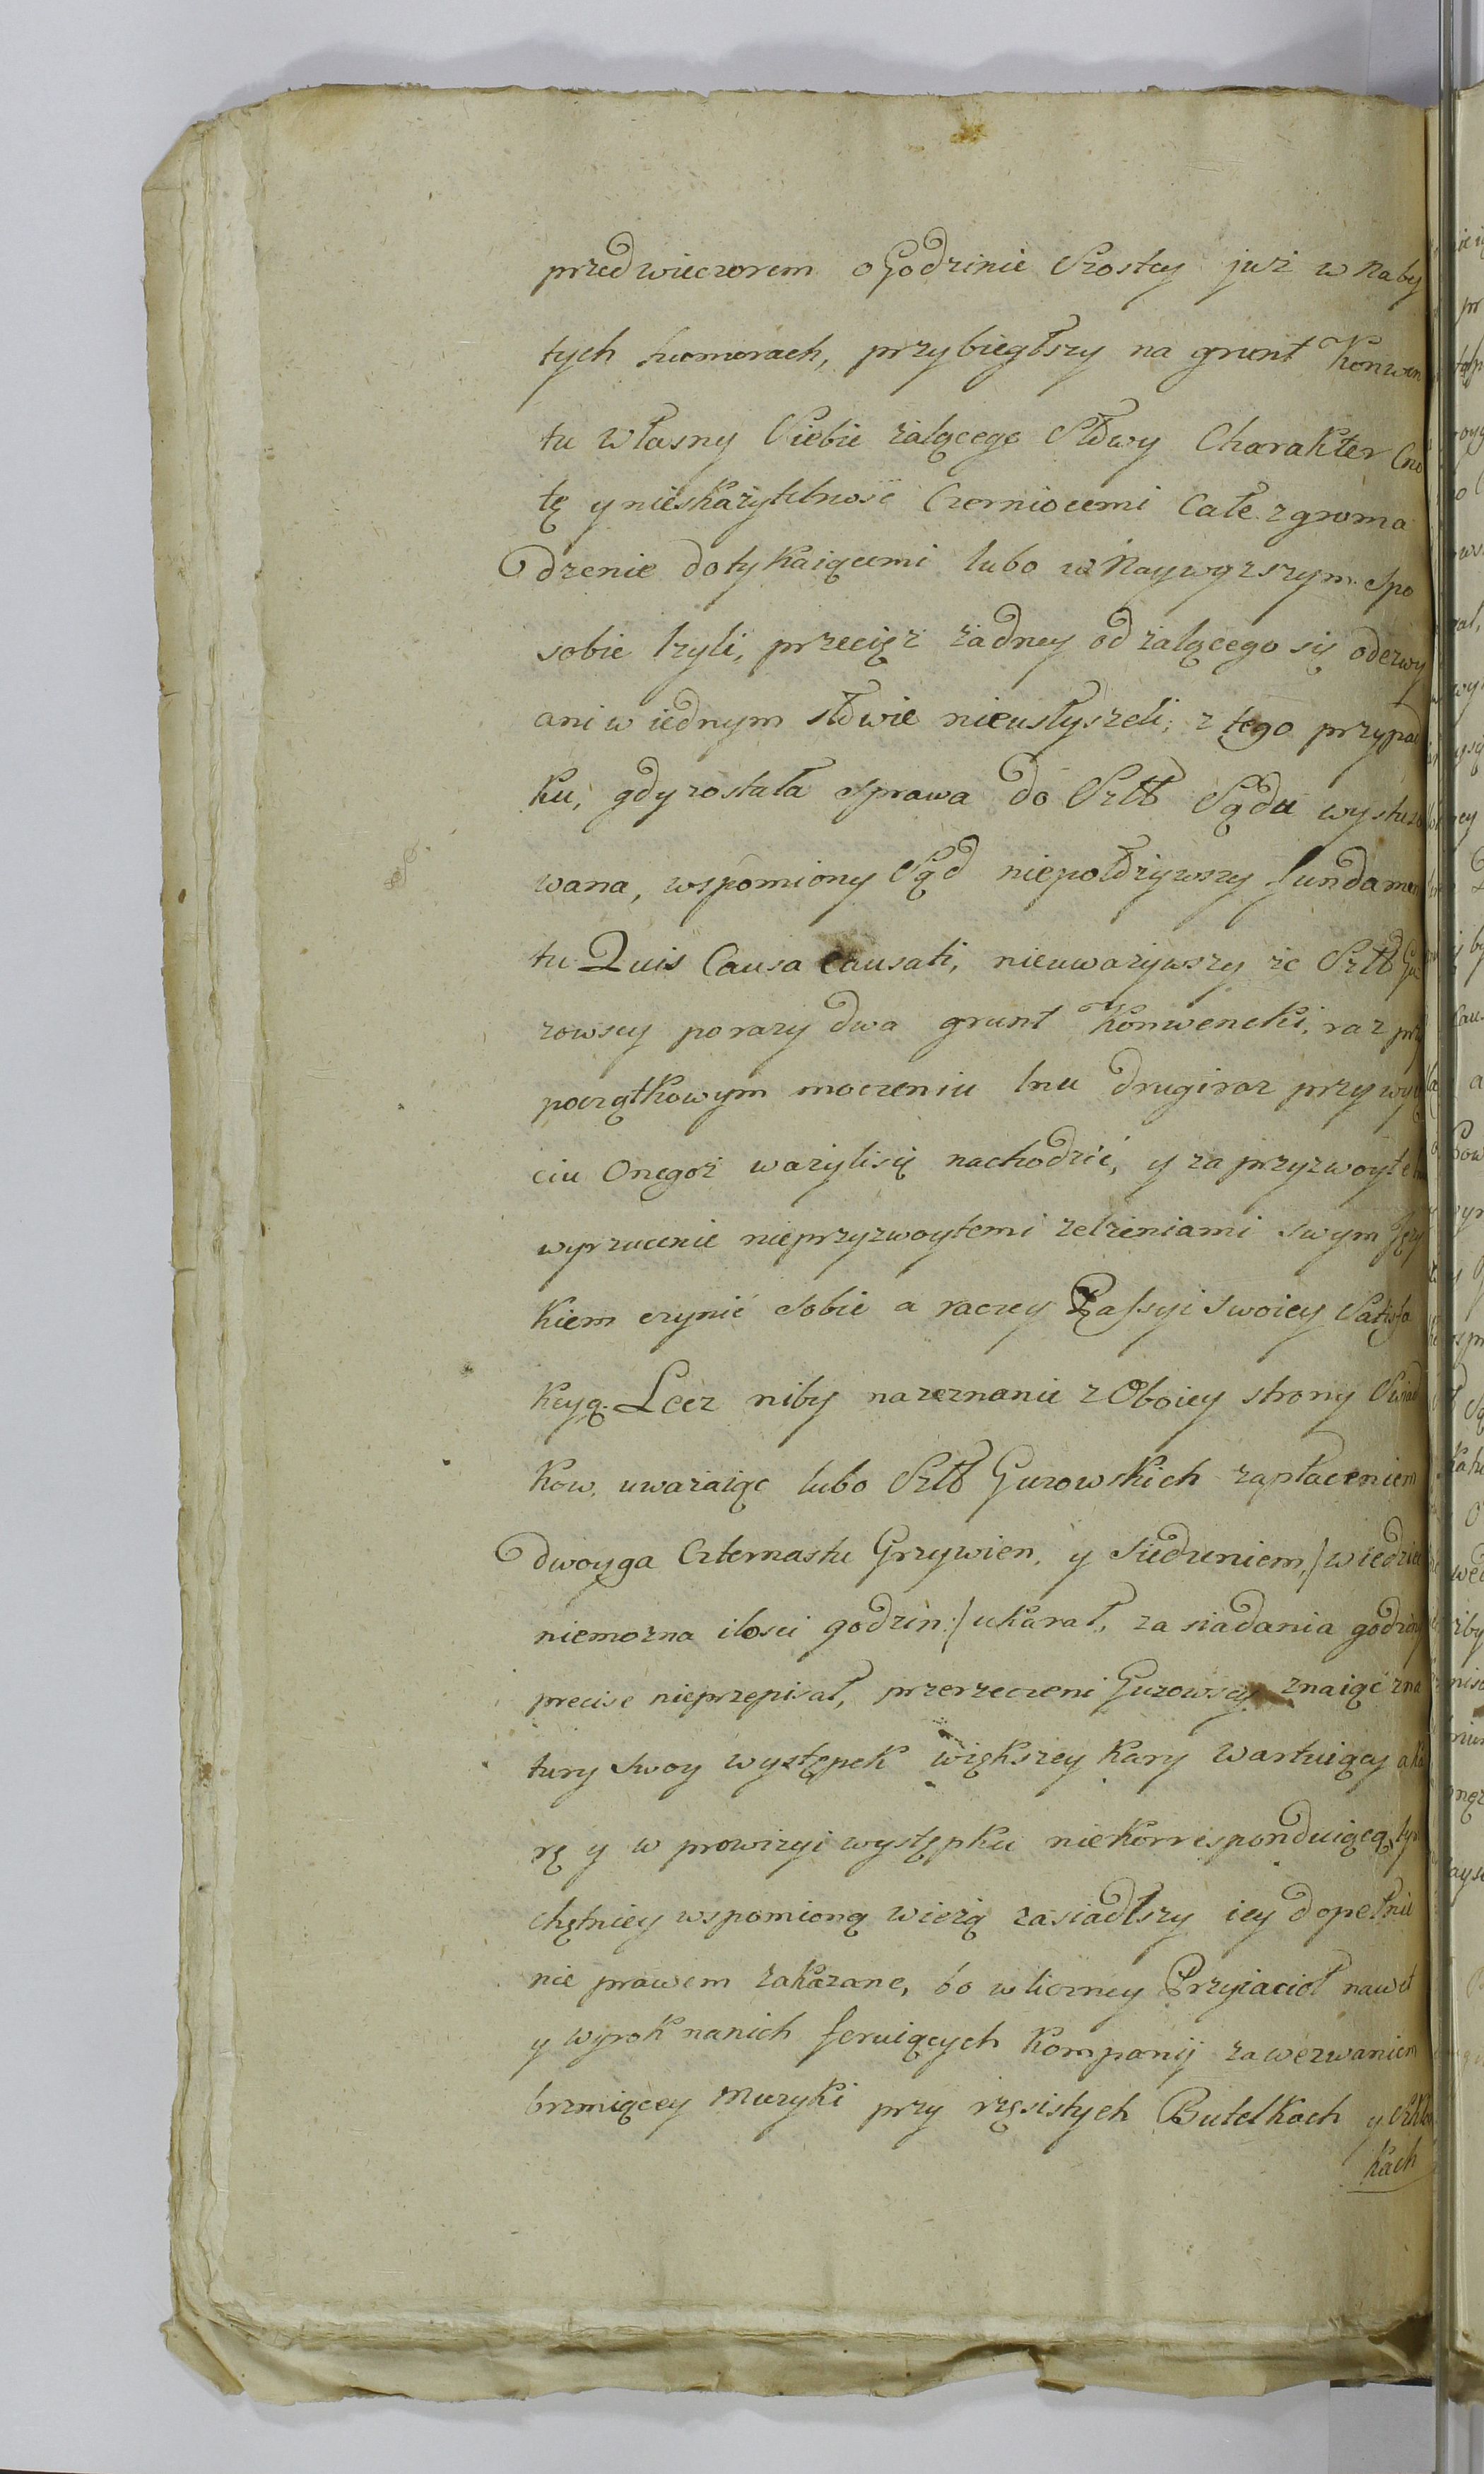 przedwieczorem o Godzinie Szostey już w Naby
tych humorach, przybiegłszy na grunt Konwen
tu własny Siebie żalącego Słdwy Charakter Cno
tę y nieskażytelność Czerniocemi Całe zgroma
dzenie dotykaiącemi lubo w Naywyzszym Spo
sobie lzyli, przecięż żadney od żalącego się odezwy
ani w iednym słdwie nieusłyszeli, z tego przypad
ku, gdy została sprawa do Szltt Sądu wystuzo
wana, wspomiony Sąd niepołdżywszy fundamen
tu Quis Causa Causati, nieuważywszy że Szltt Gu
zowscy porazy dwa grunt Konwencki, raz prz
początkowym moczeniu lnu drugiraz przy wyię
ciu Onegoż ważylisię nachodzić, y za przyzwoyte
wyrzucenie nieprzyzwoytemi zelżeniami swym Ięzy
kiem czynić Sobie a raczey Passyi Swoiey Satisfa
kcyą. Lecz niby nazeznanie z Oboiey strony Swiad
kow, uważaiąc lubo Szltt Guzowskich zapłaceniem
dwoyga Czternastu Grzywien, y siedzeniem, /wiedzie
niemozna ilosci godzin:/ ukarał, za siadania godziny
precise nieprzepisał, przerzeczeni Guzowscy znaiąc zna
tury swoy występek większey kary wartuiący a ka
rę y w prowizyi występku niekorrespondwiącą, ty
chętniey wspomioną wieżą zasiadłszy iey dopełnie
nie prawem zakazane, bo w liczney Przyiacioł nawet
y wyrok nanich feruiących kompanij zawezwaniem
brzmiącey Muzyki przy rzęsistych Butelkach y Szklan
kach